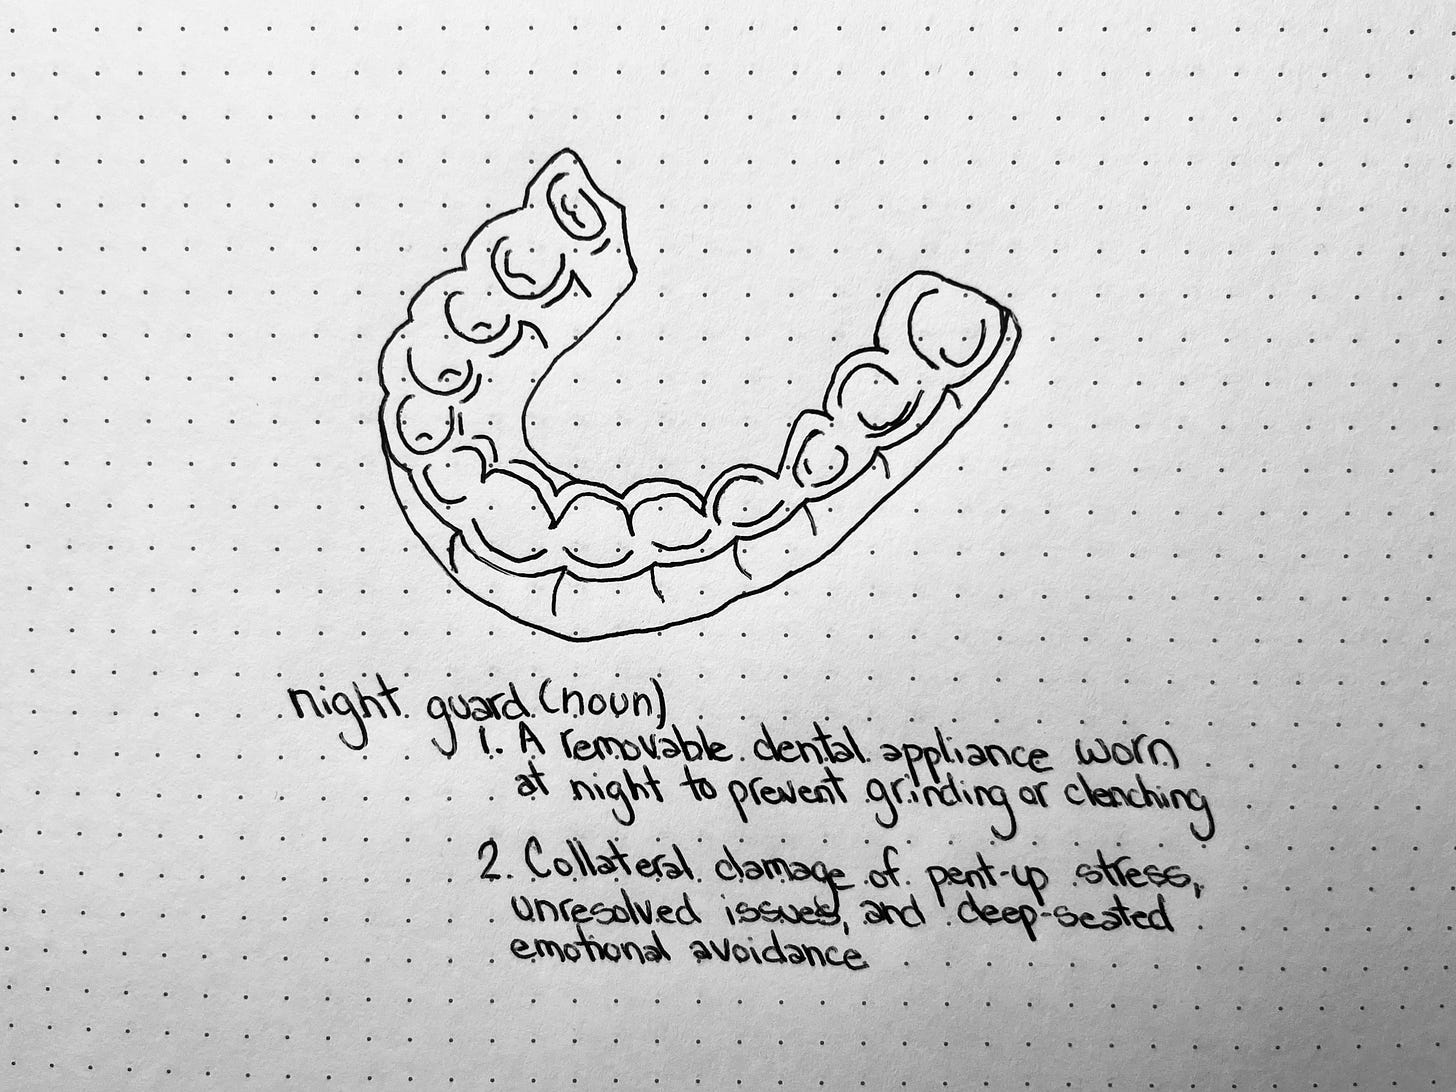 night guard (noun)
1. A removable dental appliance worn
at night to prevent grinding or clenching
2. Collateral damage of pent-up stress,
unresolved issues, and deep-seated
emotional avoidance